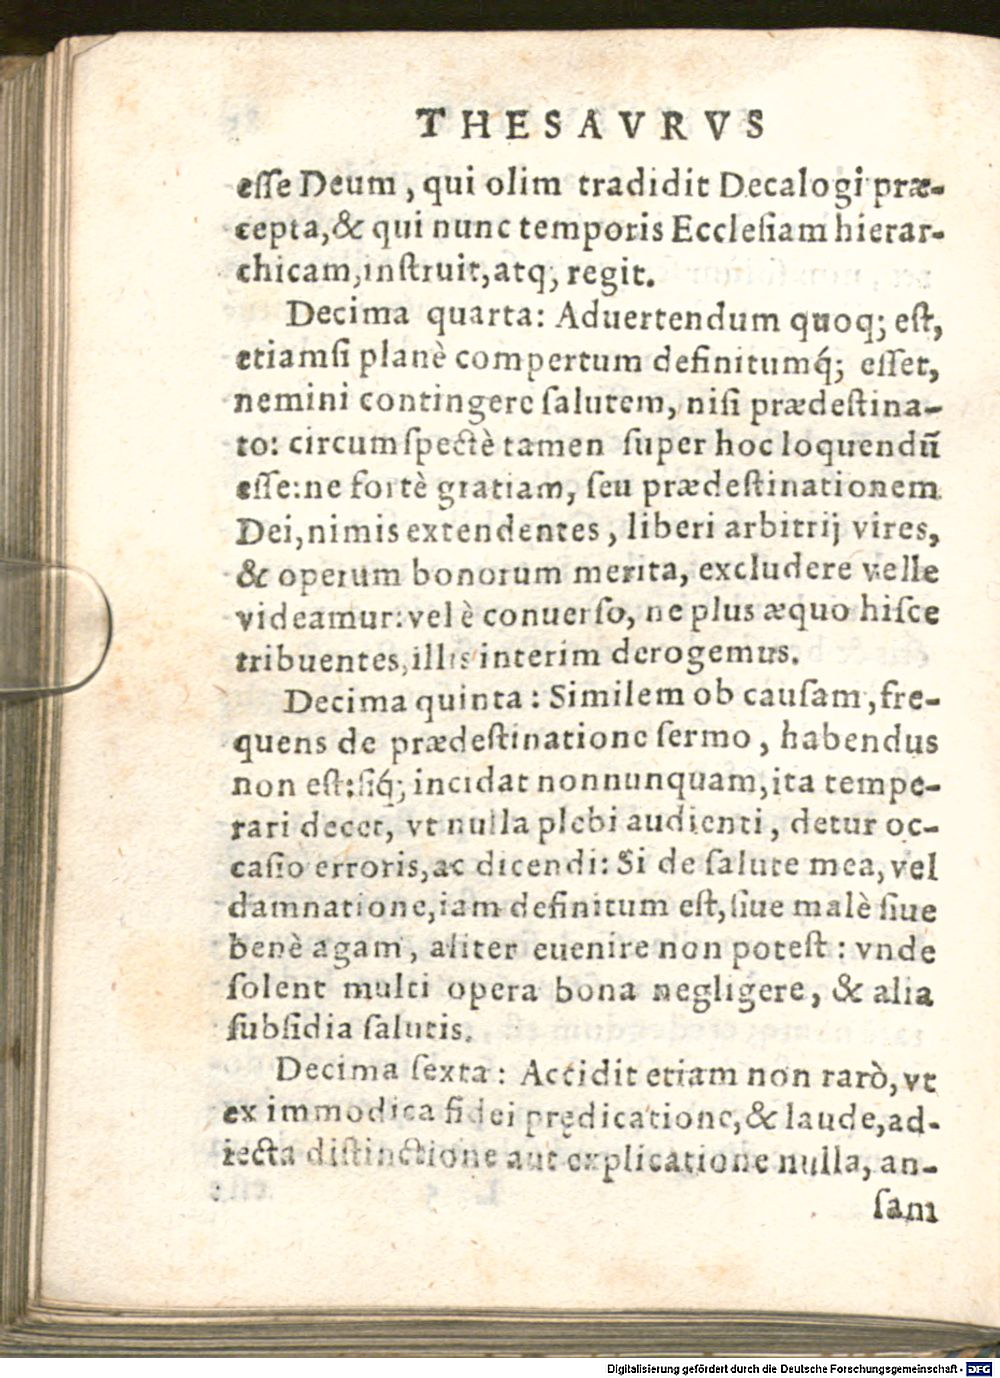 THESAVRVS
eſſe Deum, qui olim tradidit Decalogi præ-
cepta,& qui nunc temporis Eccleſiam hierar-
chicam,inſtruit,atq; regit.
Decima quarta: Aduertendum quoq; eſt,
etiamſi planè compertum definitumq́; eſſet,
nemini contingere ſalutem, niſi prædeſtina-
to: circumſpectè tamen ſuper hoc loquendū
eſſe:ne fortè gratiam, ſeu prædeſtinationem
Dei,nimis extendentes, liberi arbitrij vires,
& operum bonorum merita, excludere velle
videamur:vel è conuerſo, ne plus æquo hiſce
tribuentes,illis interim derogemus.
Decima quinta: Similem ob cauſam,fre-
quens de prædeſtinatione ſermo, habendus
non eſt:ſiq́; incidat nonnunquam,ita tempe-
rari decet, vt nulla plebi audienti, detur oc-
caſio erroris,ac dicendi: Si de ſalute mea, vel
damnatione,iam definitum eſt,ſiue malè ſiue
benè agam, aliter euenire non poteſt: vnde
ſolent multi opera bona negligere, & alia
ſubſidia ſalutis.
Decima ſexta: Accidit etiam non rarò,vt
ex immodica fidei prędicatione,& laude,ad-
iecta diſtinctione aut explicatione nulla, an-
ſam
Digitalisierung gefördert durch die Deutsche Forschungsgemeinschaft - DFG